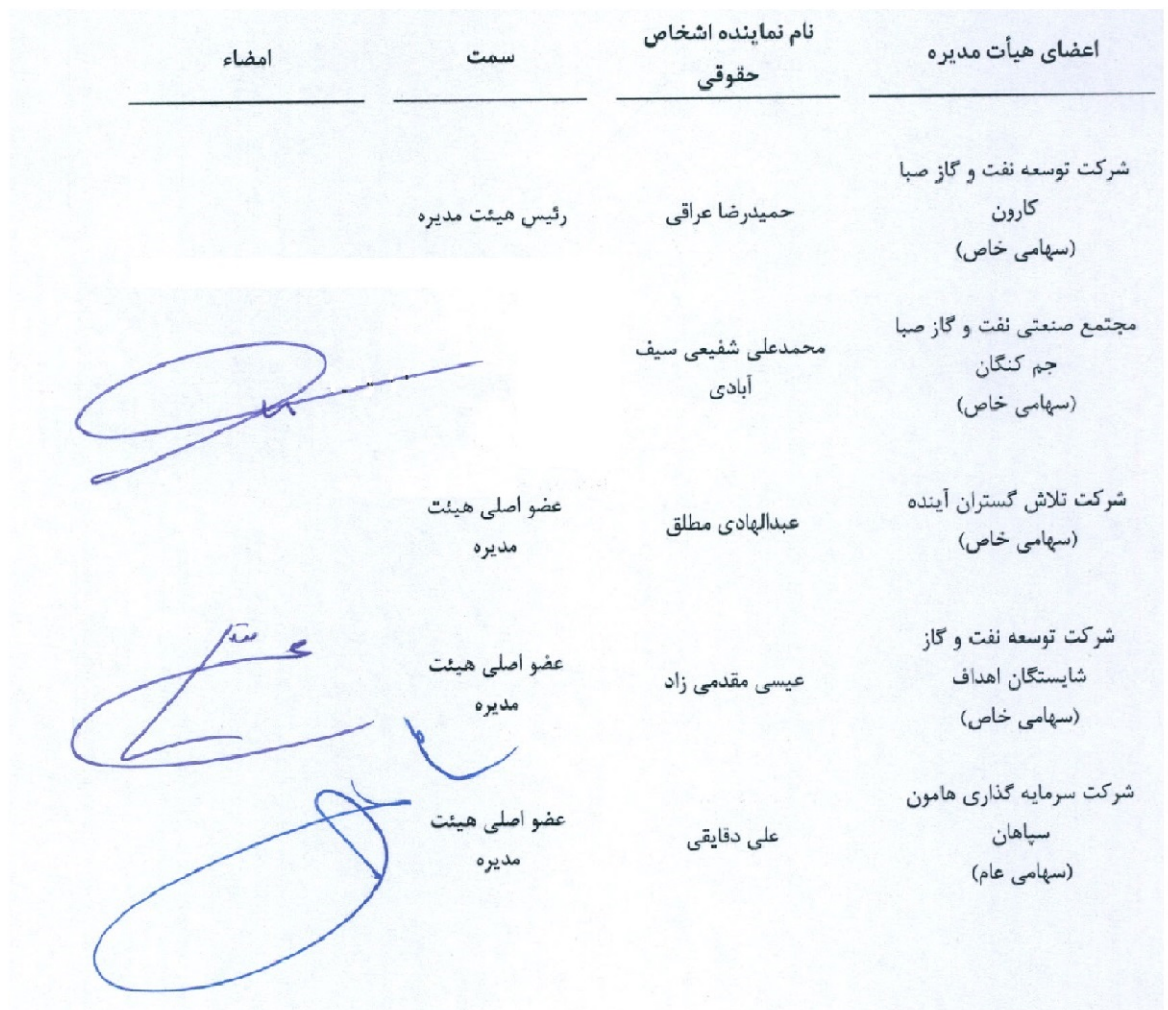 اعضای هیأت مدیره
نام نماینده اشخاص
حقوقی
سمت
امضاء
شرکت توسعه نفت و گاز صبا
کارون
(سهامی خاص)
حمیدرضا عراقی
رئیس هیئت مدیره
مجتمع صنعتی نفت و گاز صبا
جم کنگان
(سهامی خاص)
محمدعلی شفیعی سیف
آبادی
شرکت تلاش گستران آینده
(سهامی خاص)
عبدالهادی مطلق
عضو اصلی هیئت
مدیره
شرکت توسعه نفت و گاز
شایستگان اهداف
(سهامی خاص)
عیسی مقدمی زاد
عضو اصلی هیئت
مدیره
شرکت سرمایه گذاری هامون
سپاهان
(سهامی عام)
علی دقایقی
عضو اصلی هیئت
مدیره